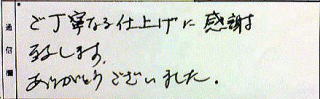 通信欄
ご丁寧なる仕上げに感謝
致します。
ありがとうございました。